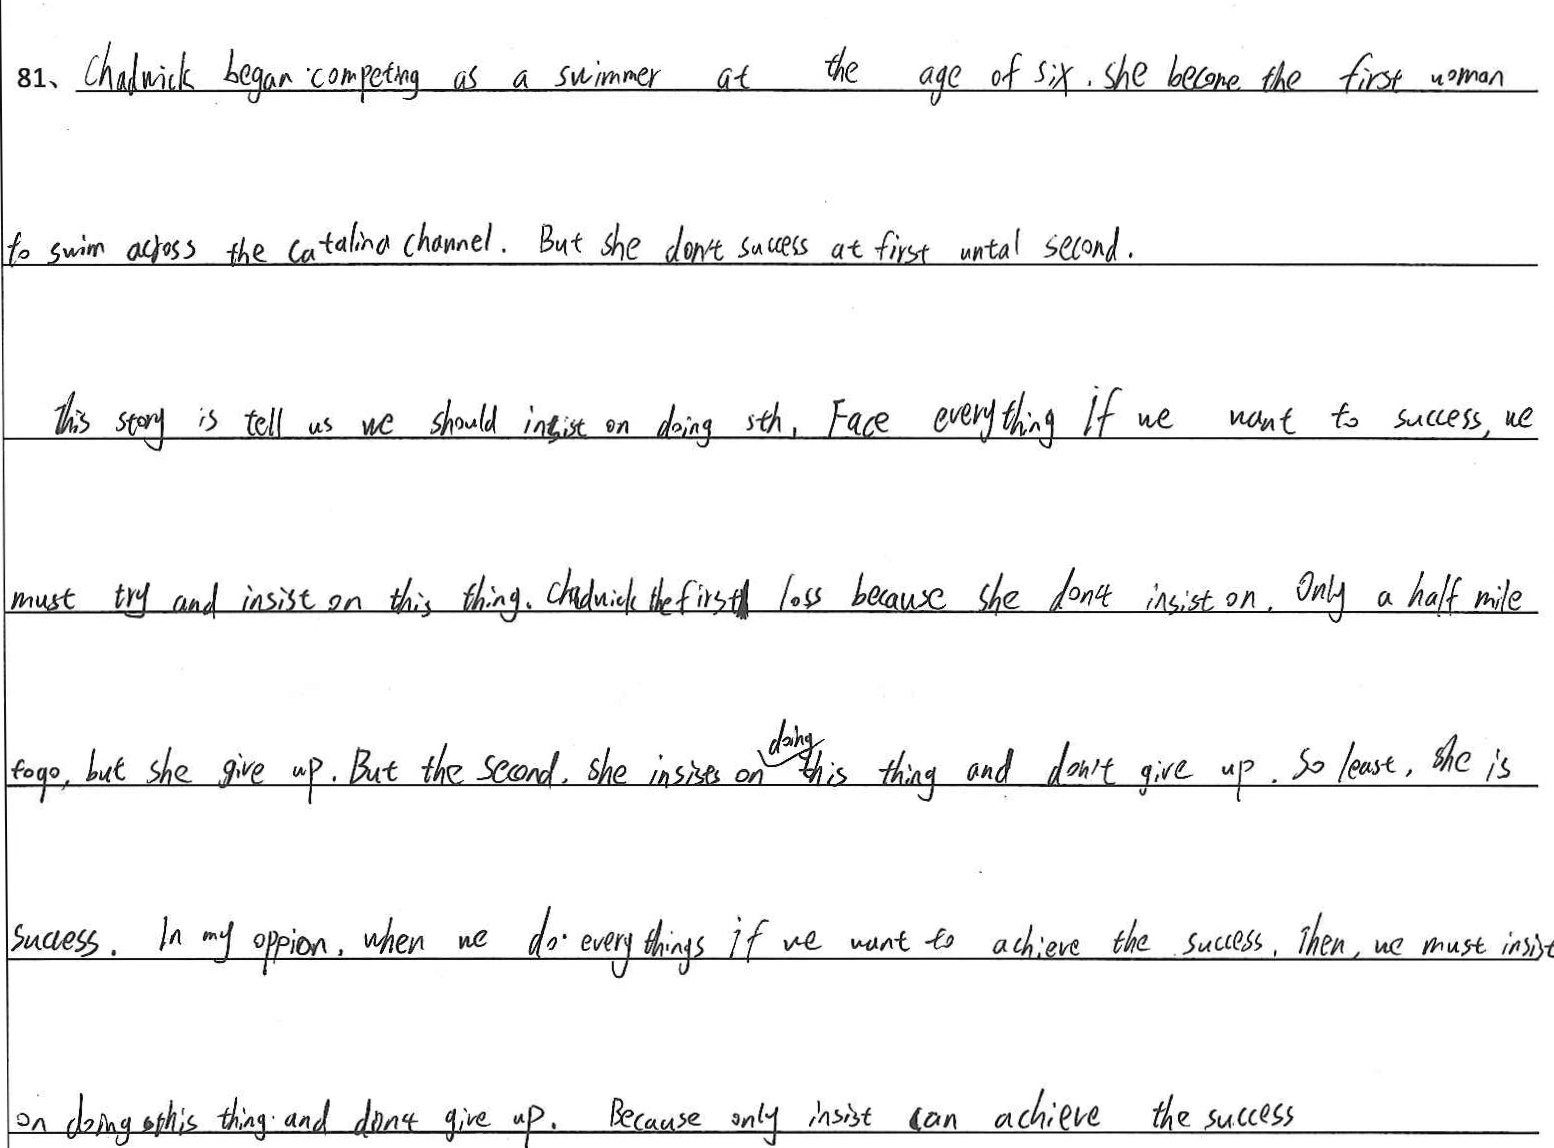 81、Chadwick began competing as a swimmer at the age of six. She become the first woman
to swim across the Catalina channel. But she don't success at first untal second.
This story is tell us we should insist on doing sth, Face everything If we want to success, we
must try and insist on this thing. Chadwick the first loss because she don't insist on. Only a half mile
togo, but she give up. But the second, she insists on doing this thing and don't give up. So least, she is
success. In my oppion, when we do everythings if we want to achieve the success. Then, we must insist
on doing this thing and don't give up. Because only insist can achieve the success